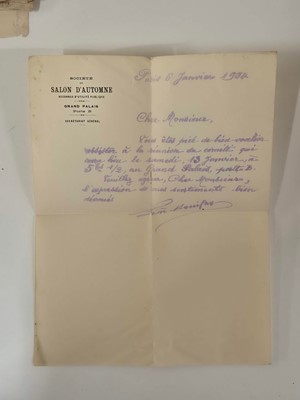 SOCIÉTÉ
DU
SALON D'AUTOMNE
RECONNUE D'UTILITÉ PUBLIQUE
GRAND PALAIS
Porte
SECRÉTARIAT GÉNÉRAL
Paris 6 Janvier
Cher Monsieur,
Vous êtes prié de bien vouloir
assister à la réunion du comité qui
aura lieu le samedi, 13 Janvier, à
5 h 1/2, au Grand Palais porte
Veuillez agréer, Cher Monsieur,
l'expression de mes sentiments bien
dévoués